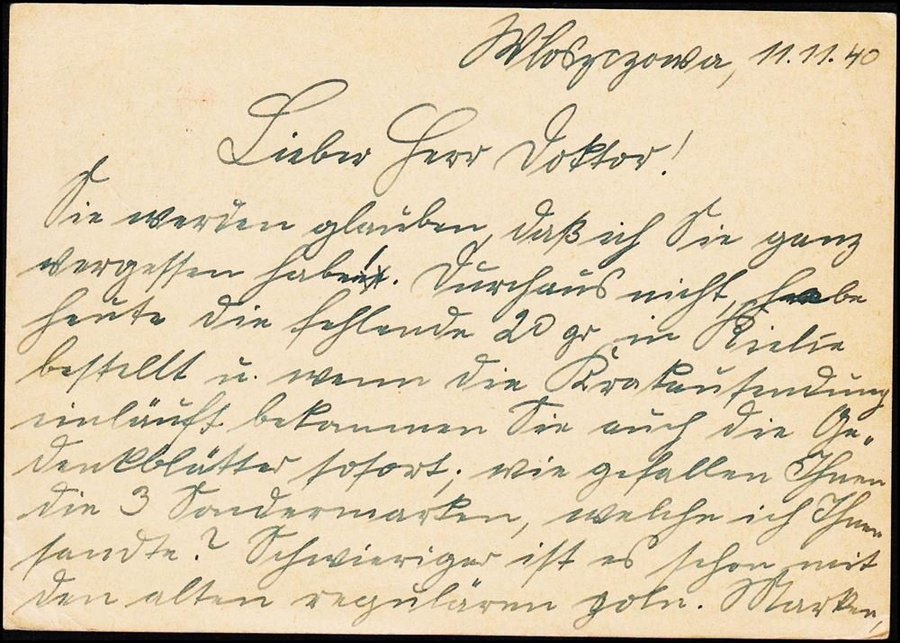 Wloszczowa, 11.11.40
Lieber Herr Doktor!
Sie werden glauben, daß ich Sie ganz
vergessen habe!. Durchaus nicht, habe
heute die fehlende 20 gr in Kielce
bestellt u. wenn die Krakausendung
einläuft bekommen Sie auch die Ge-
denkblätter sofort; wie gefallen Ihnen
die 3 Sondermarken, welche ich Ihnen
sandte? Schwieriger ist es schon mit
den alten regulären poln. Marken,